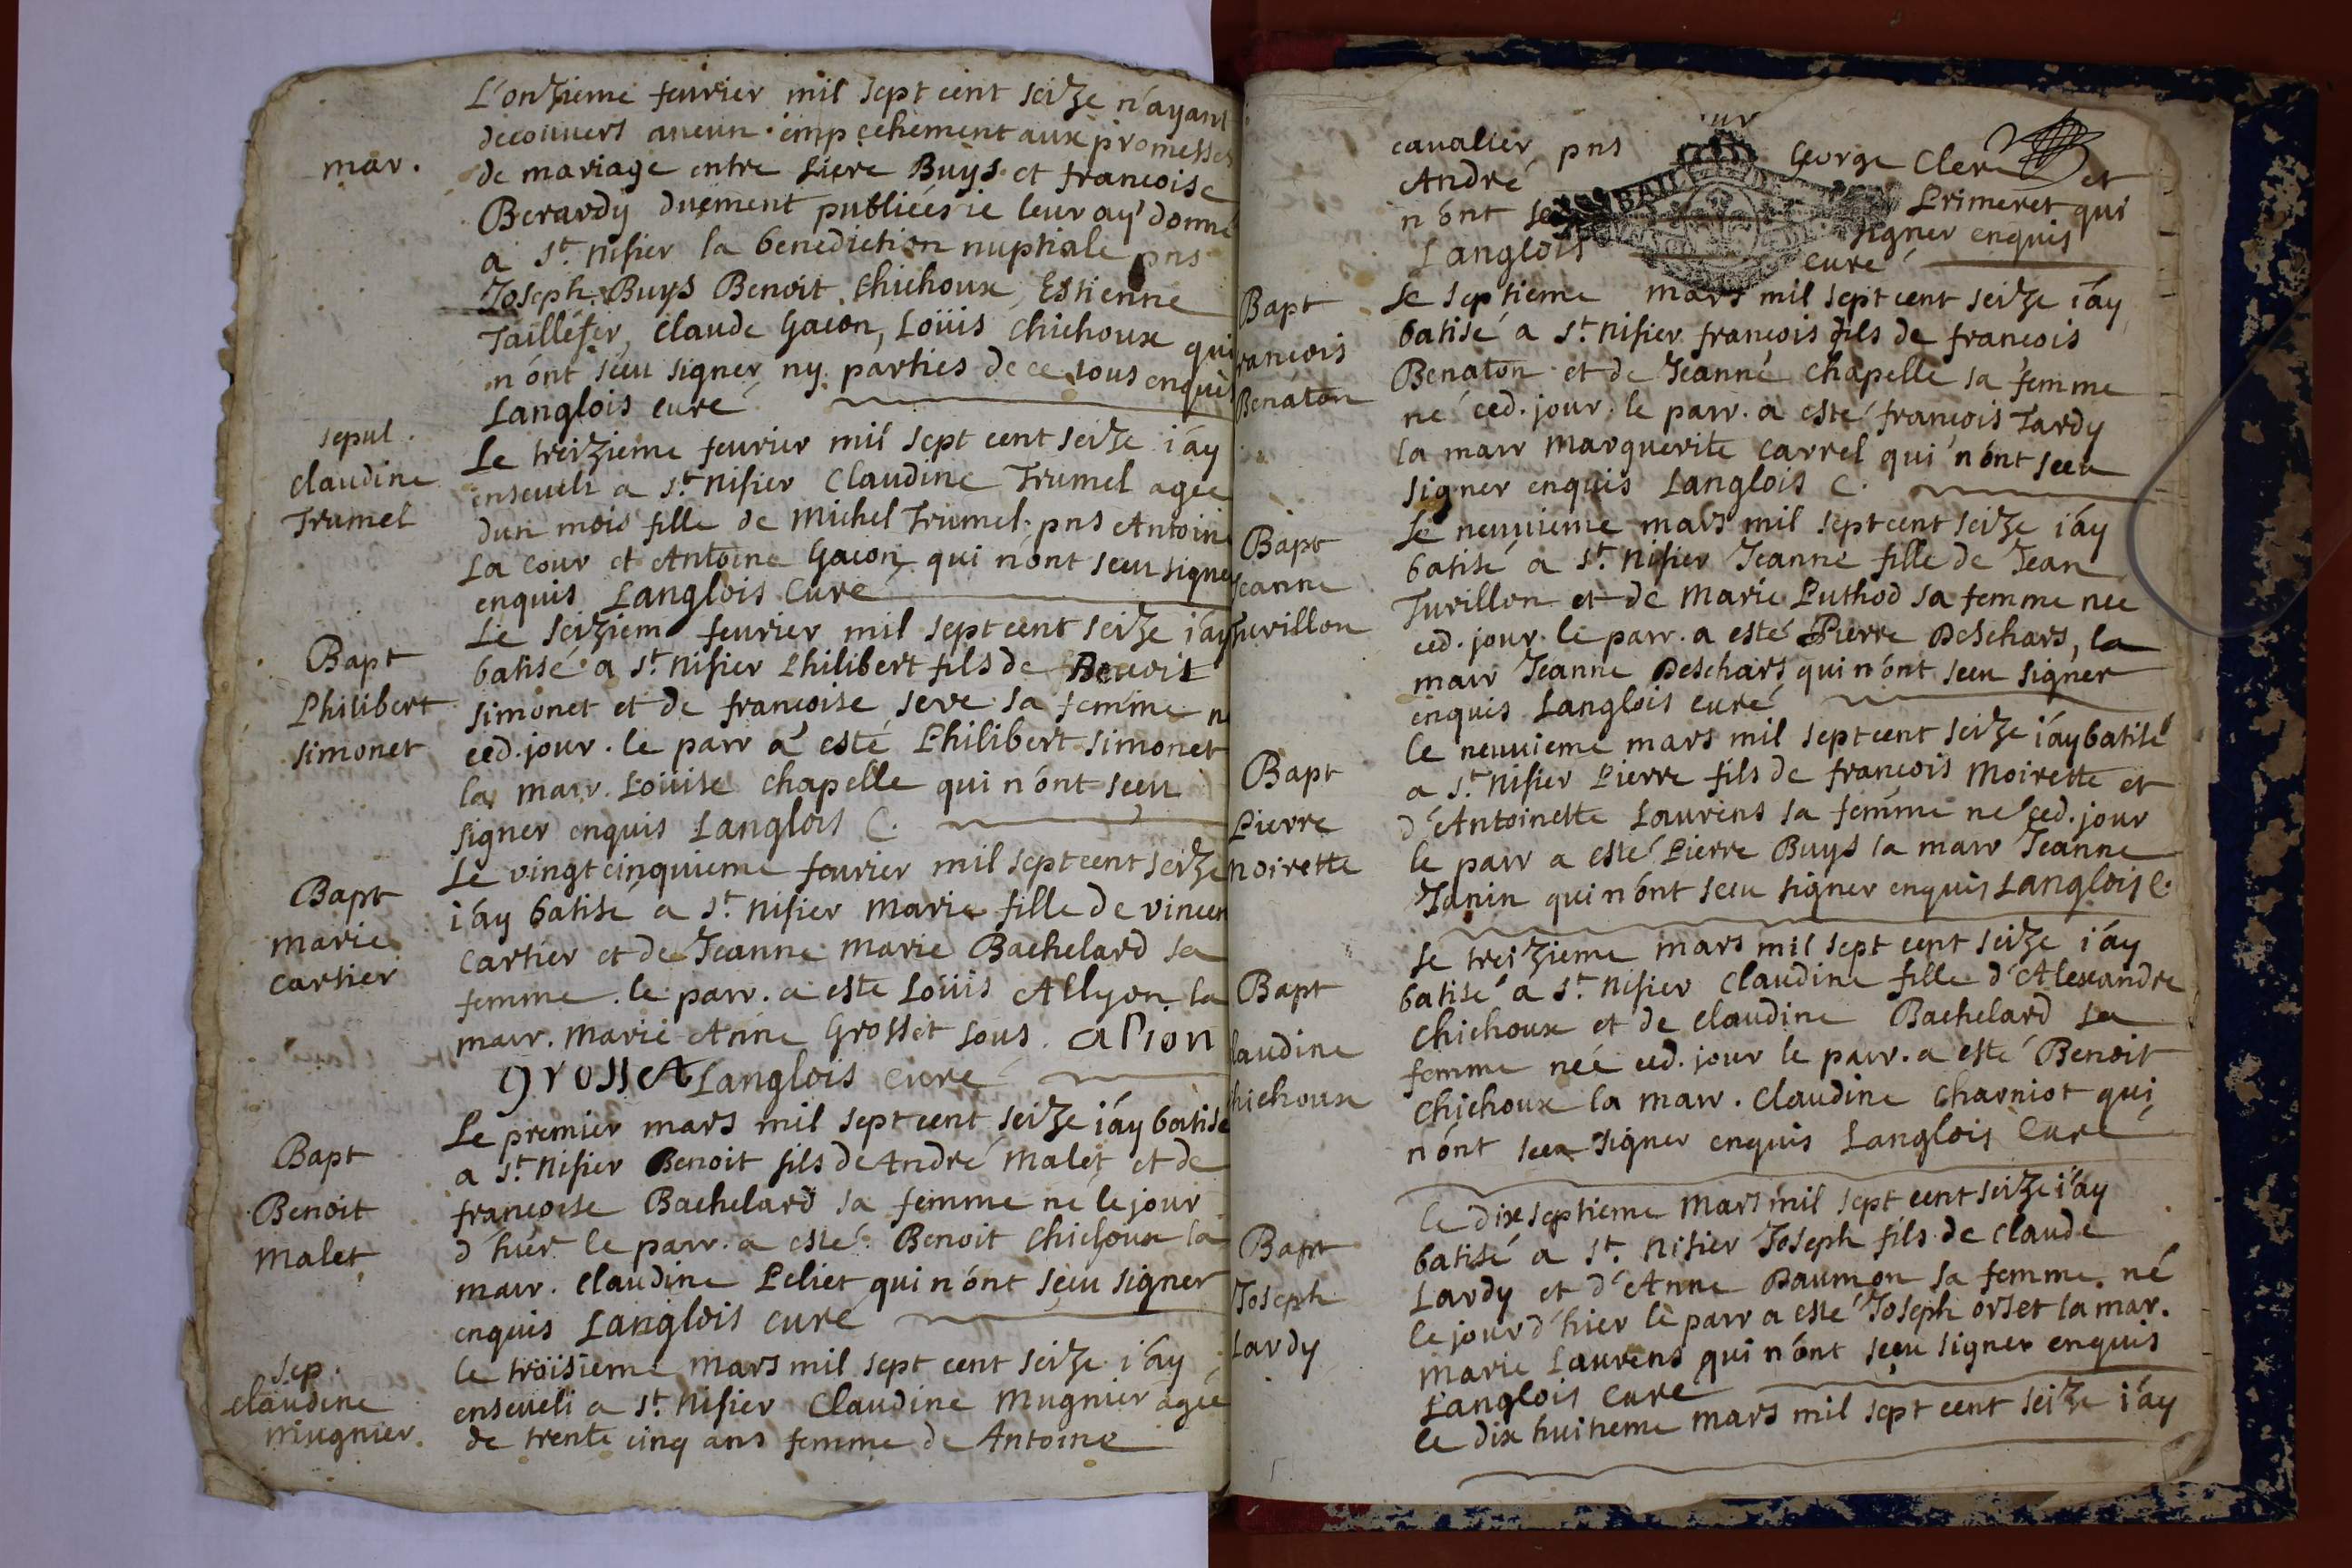 L'onzieme feurier mil sept cent seize n'ayant
decouuert aucun empechement aux promesses
mar.
de mariage entre Piere Buys et francoise
Berardy duëment publiées ie leur ay donné
a St. Nisier la benediction nuptiale pns
Joseph Buys Benoit Chichoux, Estienne
Taillefer, Claude Gacon, Loüis Chichoux qui
n'ont sceu signer ny parties de ce sous enquis
Langlois curé
sepul.
claudine
Trumel
Le treizieme feurier mil sept cent seize i'ay
enseueli a St. Nisier Claudine Trumel agée
dun mois fille de Michel Trumel. pns Antoine
La Cour et Antoine Gacon qui n'ont sceu signer
enquis Langlois Curé
Bapt
Philibert
simonet
Le seiziem feurier mil sept cent seize i'ay
batisé a St Nisier Philibert fils de Benoit
simonet et de francoise serre sa femme n
ced. jour. le parr a esté Philibert simonet
la marr. Loüise chapelle qui n'ont sceu
signer enquis Langlois C.
Bapt
marie
cartier
Le vingt cinquieme feurier mil sept cent seize
i'ay batisé a St Nisier Marie fille de vincen
cartier et de Jeanne Marie Bachelard sa
femme. le parr. a esté Loüis Allyon la
marr. Marie Anne Grosset sous. alion
grosset Langlois curé
Bapt
Benoit
Malet
Le premier mars mil sept cent seize i'ay batisé
a St. Nisier Benoit fils de André Malet et de
francoise Bachelard sa femme né le jour
d'hier le parr. a esté Benoit Chichoux la
marr. Claudine Peliet qui n'ont sceu signer
enquis Langlois curé
sep.
claudine
mugnier.
le troisieme mars mil sept cent seize i'ay
enseueli a St. Nisier Claudine Mugnier agée
de trente cinq ans femme de Antoine
cavalier pns George Clerc et
André Primeret qui
n'ont signer enquis
Langlois curé
Bapt
rancois
Benaton
Le septieme mars mil sept cent seize i'ay
batisé a St. Nisier francois fils de francois
Benaton et de Jeanne Chapelle sa femme
né ced. jour. le parr. a esté francois Tardy
la marr Marguerite Carrel qui n'ont sceu
signer enquis Langlois C.
Bapt
Jeanne
Turillon
Le neuuieme mars mil sept cent seize i'ay
batisé a St. Nisier Jeanne fille de Jean
Turillon et de Marie Puthod sa femme née
ced. jour. le parr. a esté Pierre Deschars, la
marr Jeanne Deschars qui n'ont sceu signer
enquis Langlois curé
Bapt
Pierre
moirette
le neuuieme mars mil sept cent seize i'ay batisé
a St. Nisier Pierre fils de francois Moirette et
d'Antoinette Laurens sa femme né ced. jour
le parr a esté Pierre Buys la marr Jeanne
Janin qui n'ont sceu signer enquis Langlois C.
Bapt
laudine
hichoux
Le treizieme mars mil sept cent seize i'ay
batisé a St. Nisier Claudine fille d'Alexandre
Chichoux et de Claudine Bachelard sa
femme née ced. jour le parr. a esté Benoit
Chichoux la marr. Claudine Charniot qui
n'ont sceu signer enquis Langlois Curé
Bapt
Joseph
Lardy
le dix septieme Mars mil sept cent seize i'ay
batisé a St. Nisier Joseph fils de Claude
Lardy et d'Anne Daumon sa femme. né
le jour d'hier le parr a esté Joseph orset la mar.
Marie Laurens qui n'ont sceu signer enquis
Langlois Curé
le dix huitieme mars mil sept cent seize i'ay